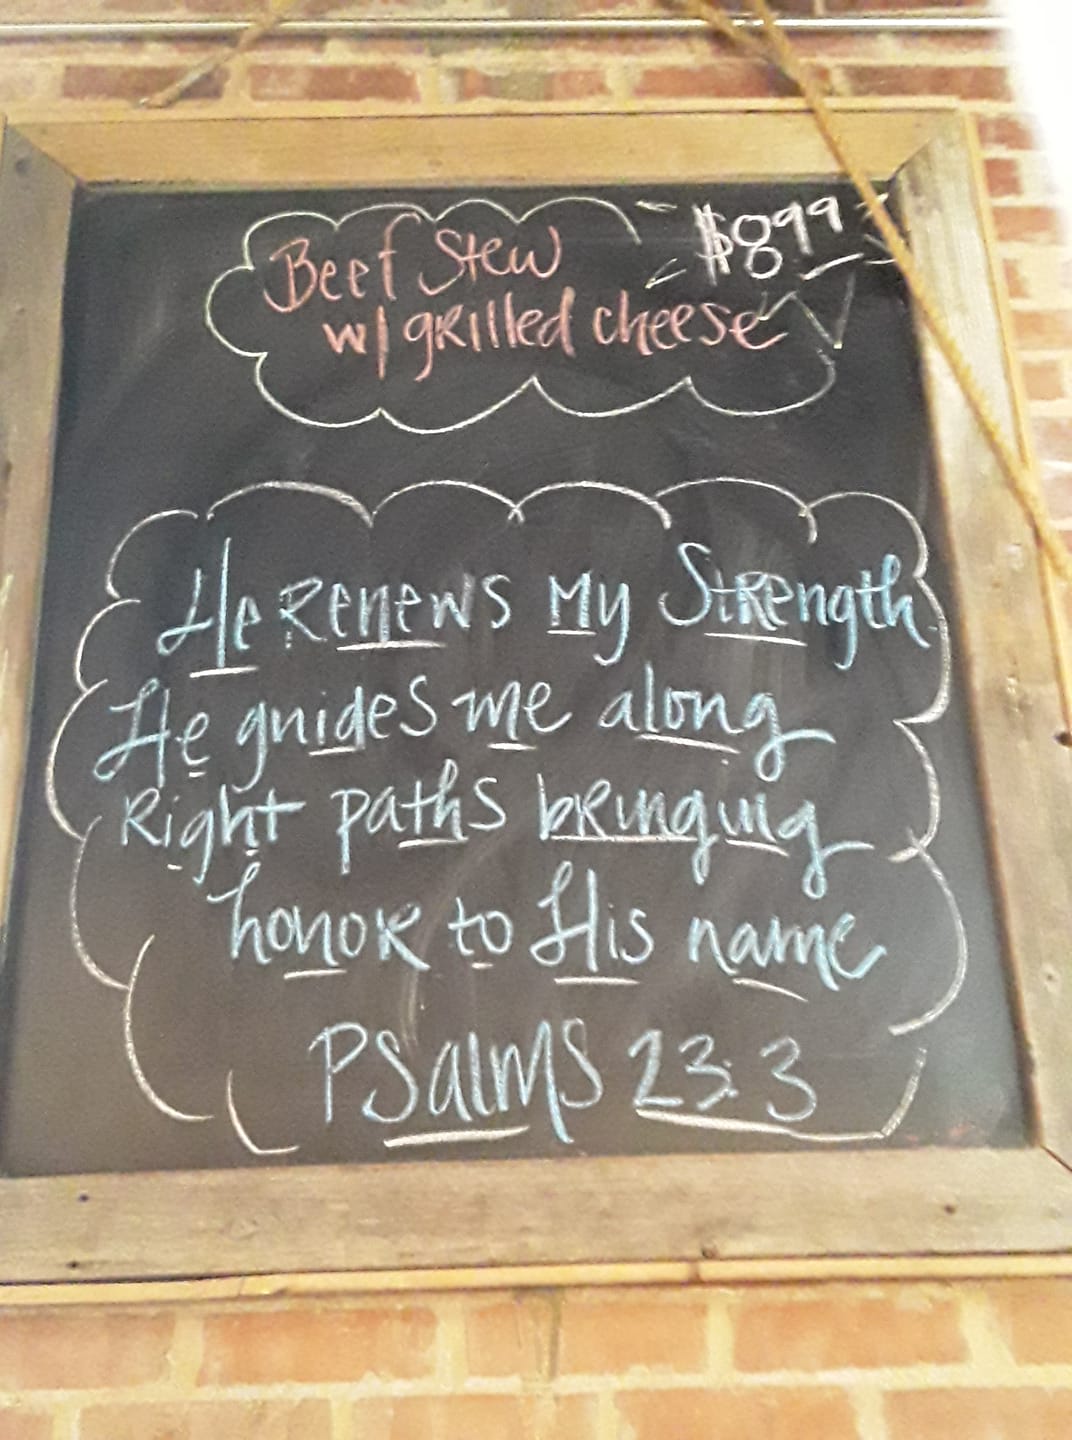 Beef Stew
$8.99
w/ grilled cheese
He Renews My Strength.
He guides me along
Right paths bringing
honor to His name
Psalms 23:3